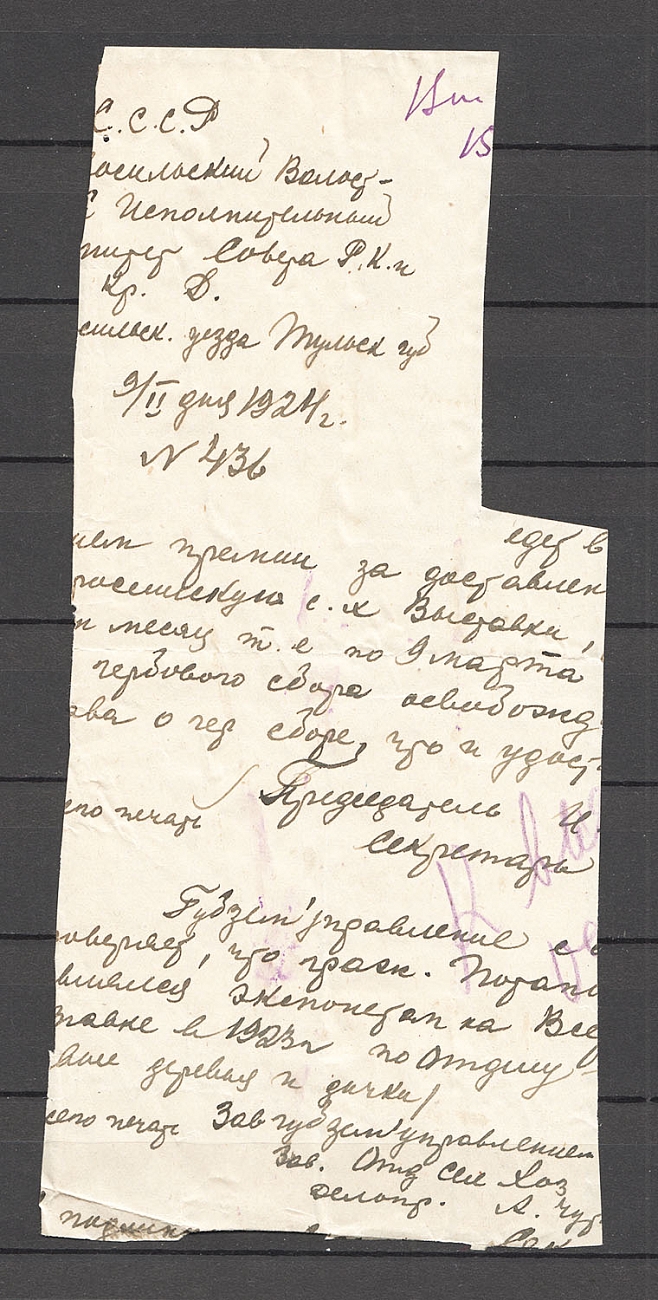 С.С.С.Р
осильский Волост-
й Исполнительный
митет Совета Р.К. и
Кр. Д.
сильск. уезда Тульск губ
9/II дня 1924 г.
N 436
едет в
ием премии за доставлен
российскую с. х Выставки,
н месяц т. е по 9 марта
гербового сбора освобожд
ава о гер сборе, что и удост
Председатель И
его печать
Секретарь
Губзем'управление с
товеряет, что граж. Потап
влялся экспонетам на Все
тавке в 1923 г по отделу
вые деревья и дички/
сего печать Завгубзем'управлением
Зав. Отд Сел Хоз
делопр. А. Чур
подлин